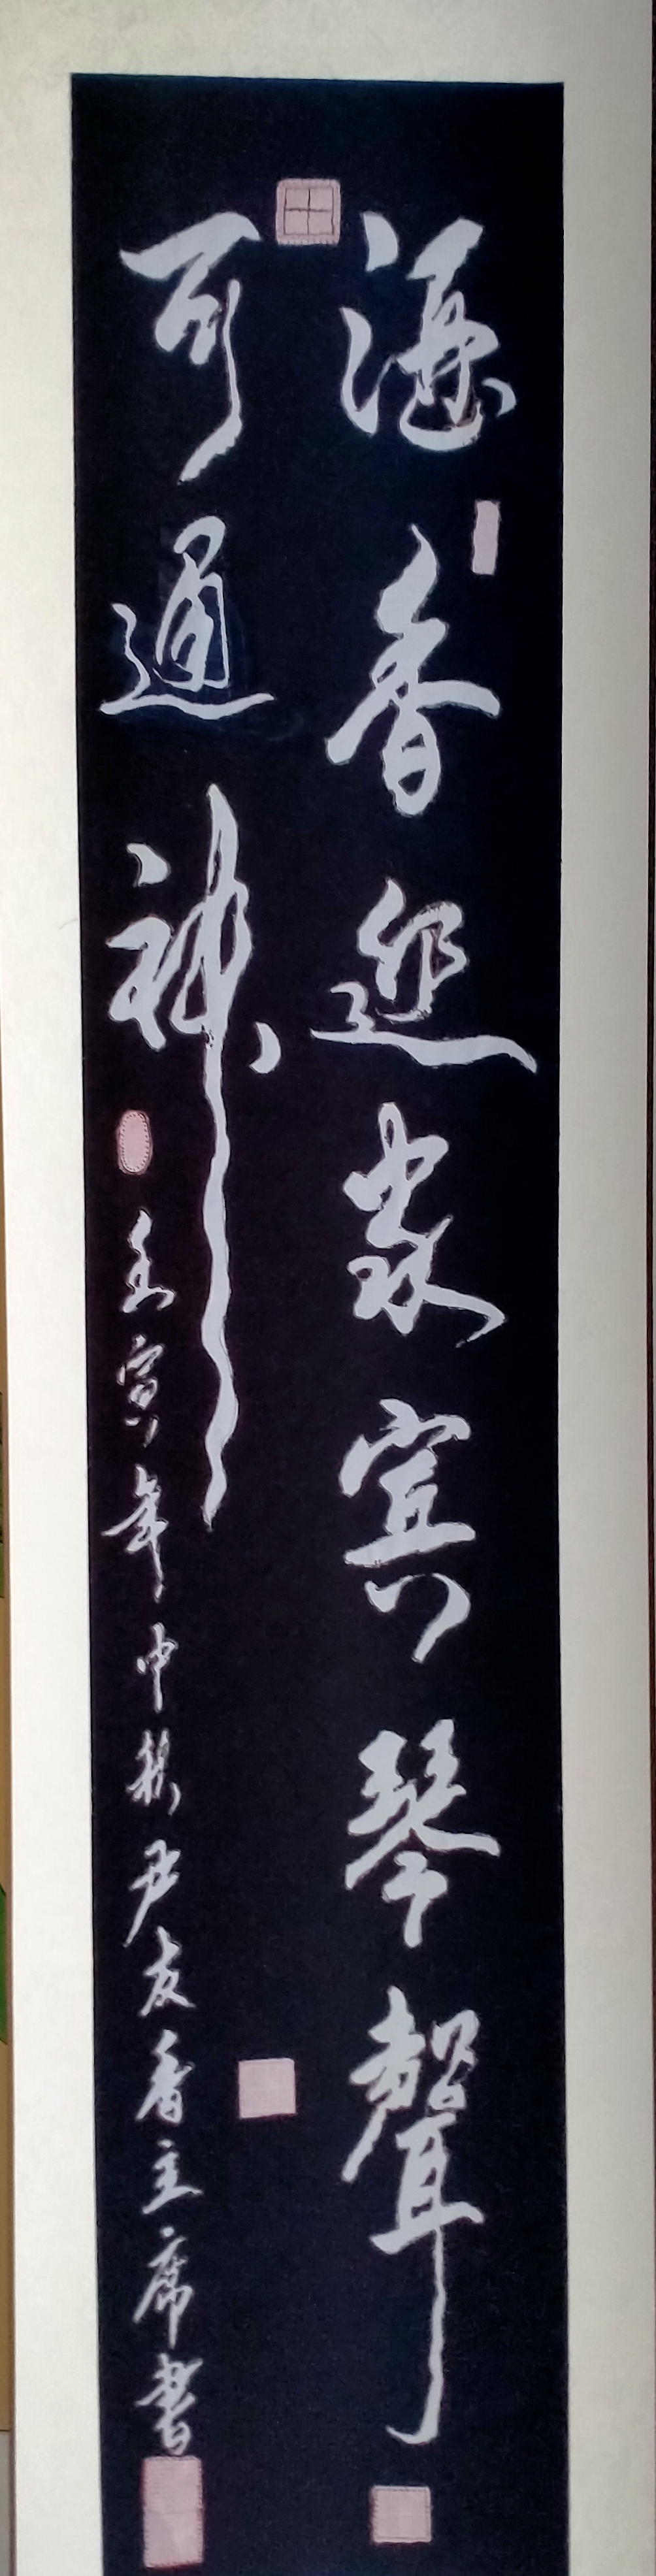 香迎衆賓琴聲
可通神
壬寅年中秋尹友香主席書